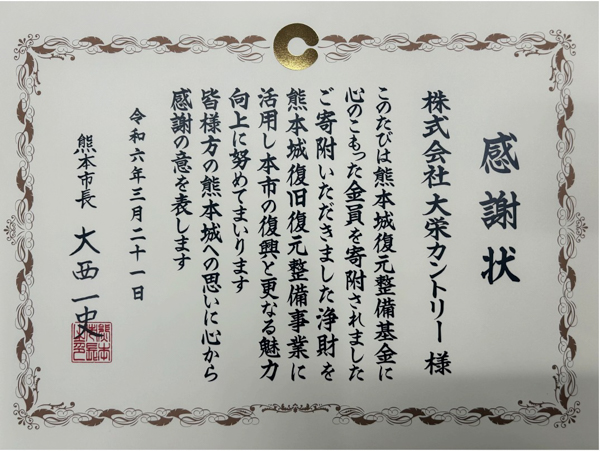 感謝状
株式会社 大栄カントリー 様
このたびは熊本城復元整備基金に
心のこもった金員を寄附されました
ご寄附いただきました浄財を
熊本城復旧復元整備事業に
活用し本市の復興と更なる魅力
向上に努めてまいります
皆様方の熊本城への思いに心から
感謝の意を表します
令和六年三月二十一日
熊本市長 大西一史
熊本市長之印